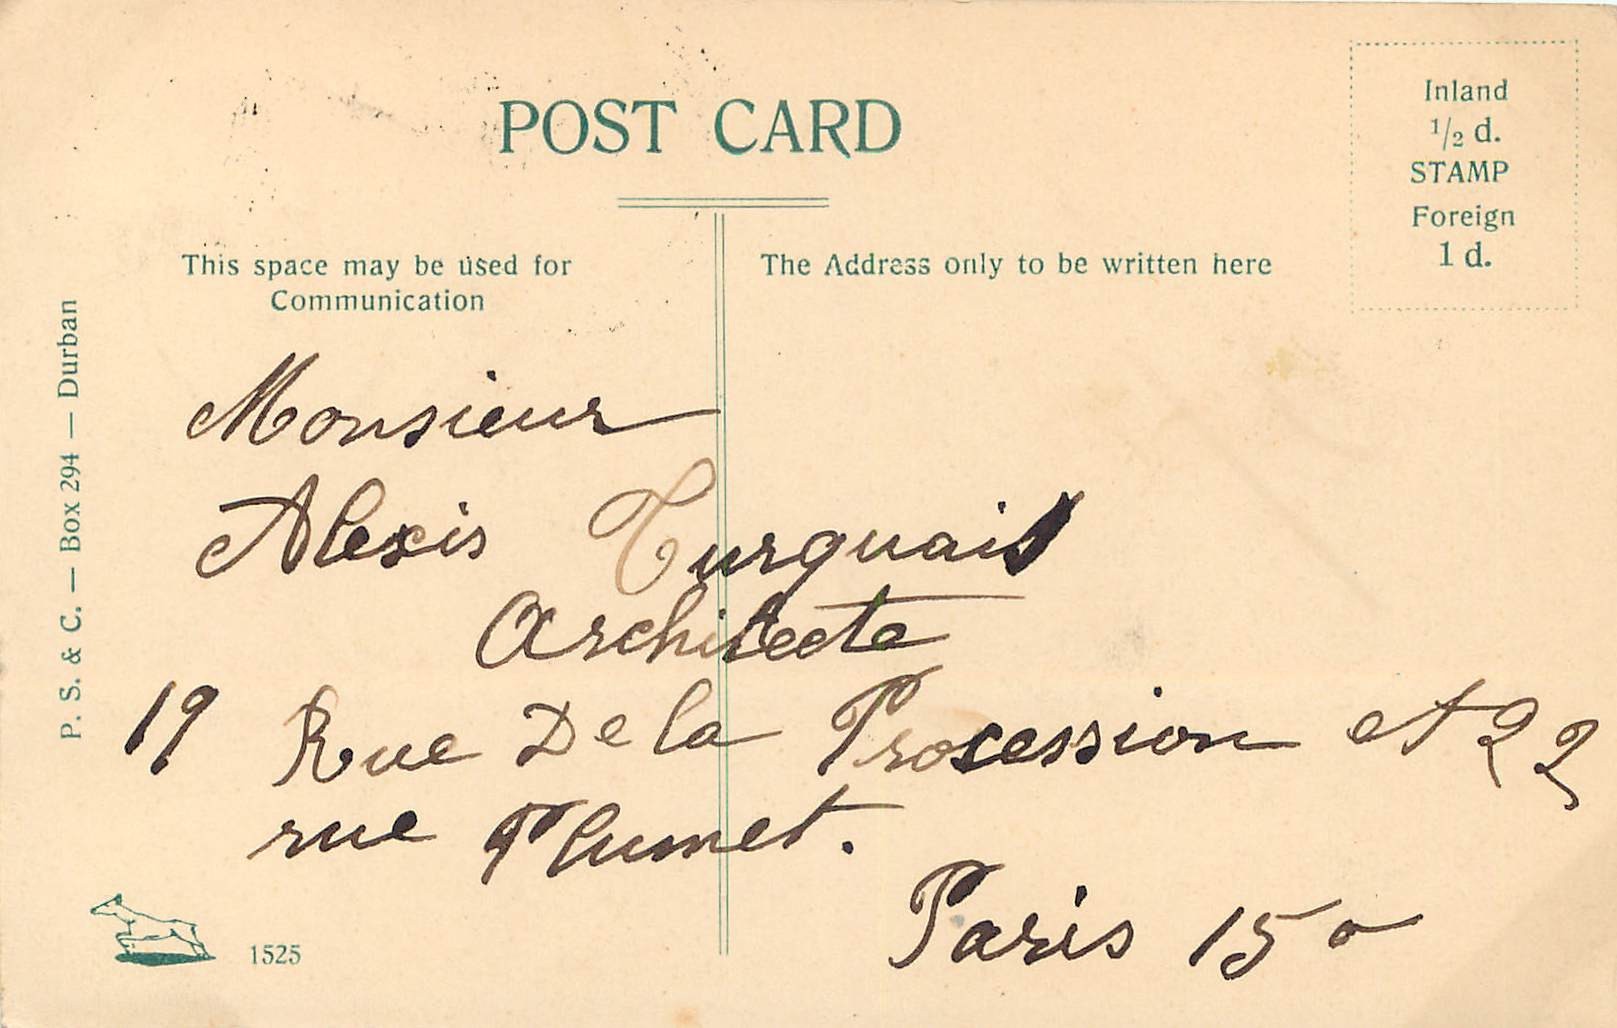 POST CARD
Inland
1/2 d.
STAMP
Foreign
1 d.
This space may be used for
Communication
The Address only to be written here
P. S. & C. — Box 294 — Durban
Monsieur
Alexis Turquais
Architecte
19 Rue De la Procession et 22
rue Plumet.
Paris 15o
1525